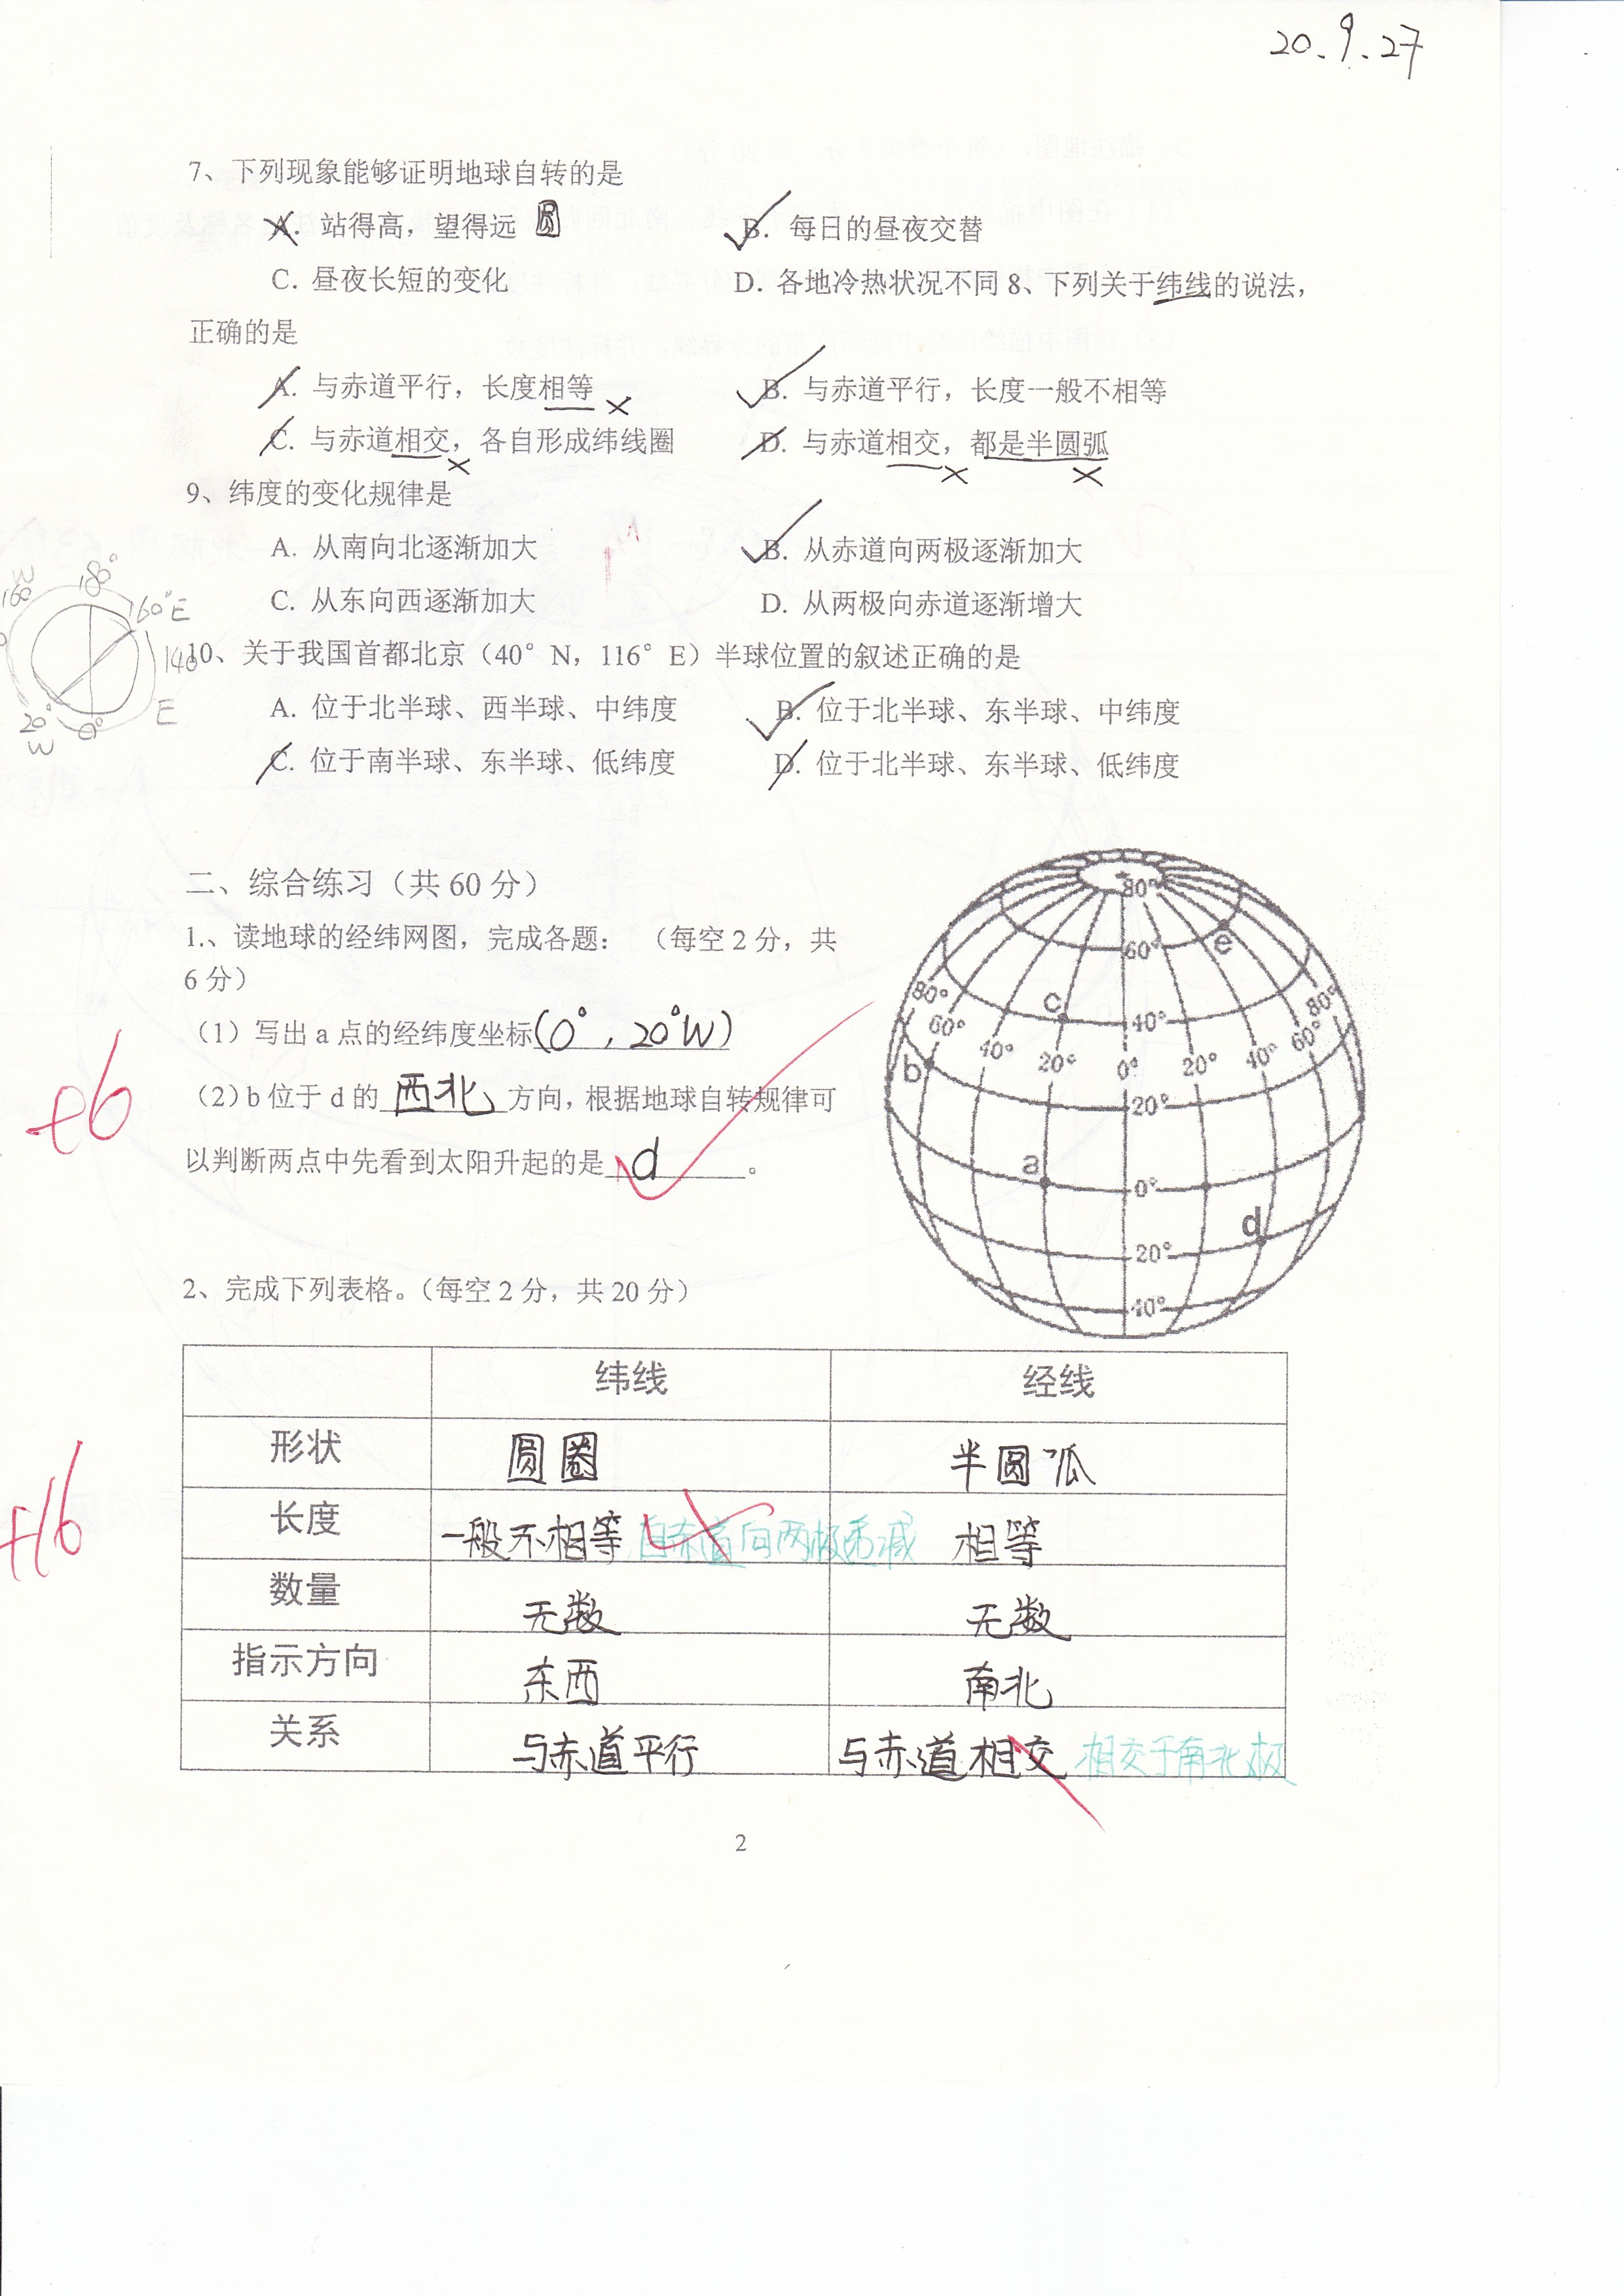 20.9.27
7、下列现象能够证明地球自转的是
A. 站得高，望得远 圆 B. 每日的昼夜交替
C. 昼夜长短的变化 D. 各地冷热状况不同 8、下列关于纬线的说法，
正确的是
A. 与赤道平行，长度相等 B. 与赤道平行，长度一般不相等
C. 与赤道相交，各自形成纬线圈 D. 与赤道相交，都是半圆弧
9、纬度的变化规律是
A. 从南向北逐渐加大 B. 从赤道向两极逐渐加大
C. 从东向西逐渐加大 D. 从两极向赤道逐渐增大
W 160 180° 160°E
140
E
20° W 0°
10、关于我国首都北京（40°N，116°E）半球位置的叙述正确的是
A. 位于北半球、西半球、中纬度 B. 位于北半球、东半球、中纬度
C. 位于南半球、东半球、低纬度 D. 位于北半球、东半球、低纬度
二、综合练习（共 60 分）
1.、读地球的经纬网图，完成各题： （每空 2 分，共
6 分）
（1）写出 a 点的经纬度坐标(0°，20°W)
（2）b 位于 d 的 西北 方向，根据地球自转规律可
以判断两点中先看到太阳升起的是 d 。
+6
80°
60° e
c
80° 40° 80°
60° 40° 20° 0° 20° 40° 60°
b
20°
a
0°
d
20°
40°
2、完成下列表格。（每空 2 分，共 20 分）
纬线 经线
形状 圆圈 半圆弧
长度 一般不相等 自赤道向两极递减 相等
+16
数量 无数 无数
指示方向 东西 南北
关系 与赤道平行 与赤道相交 相交于南北极
2